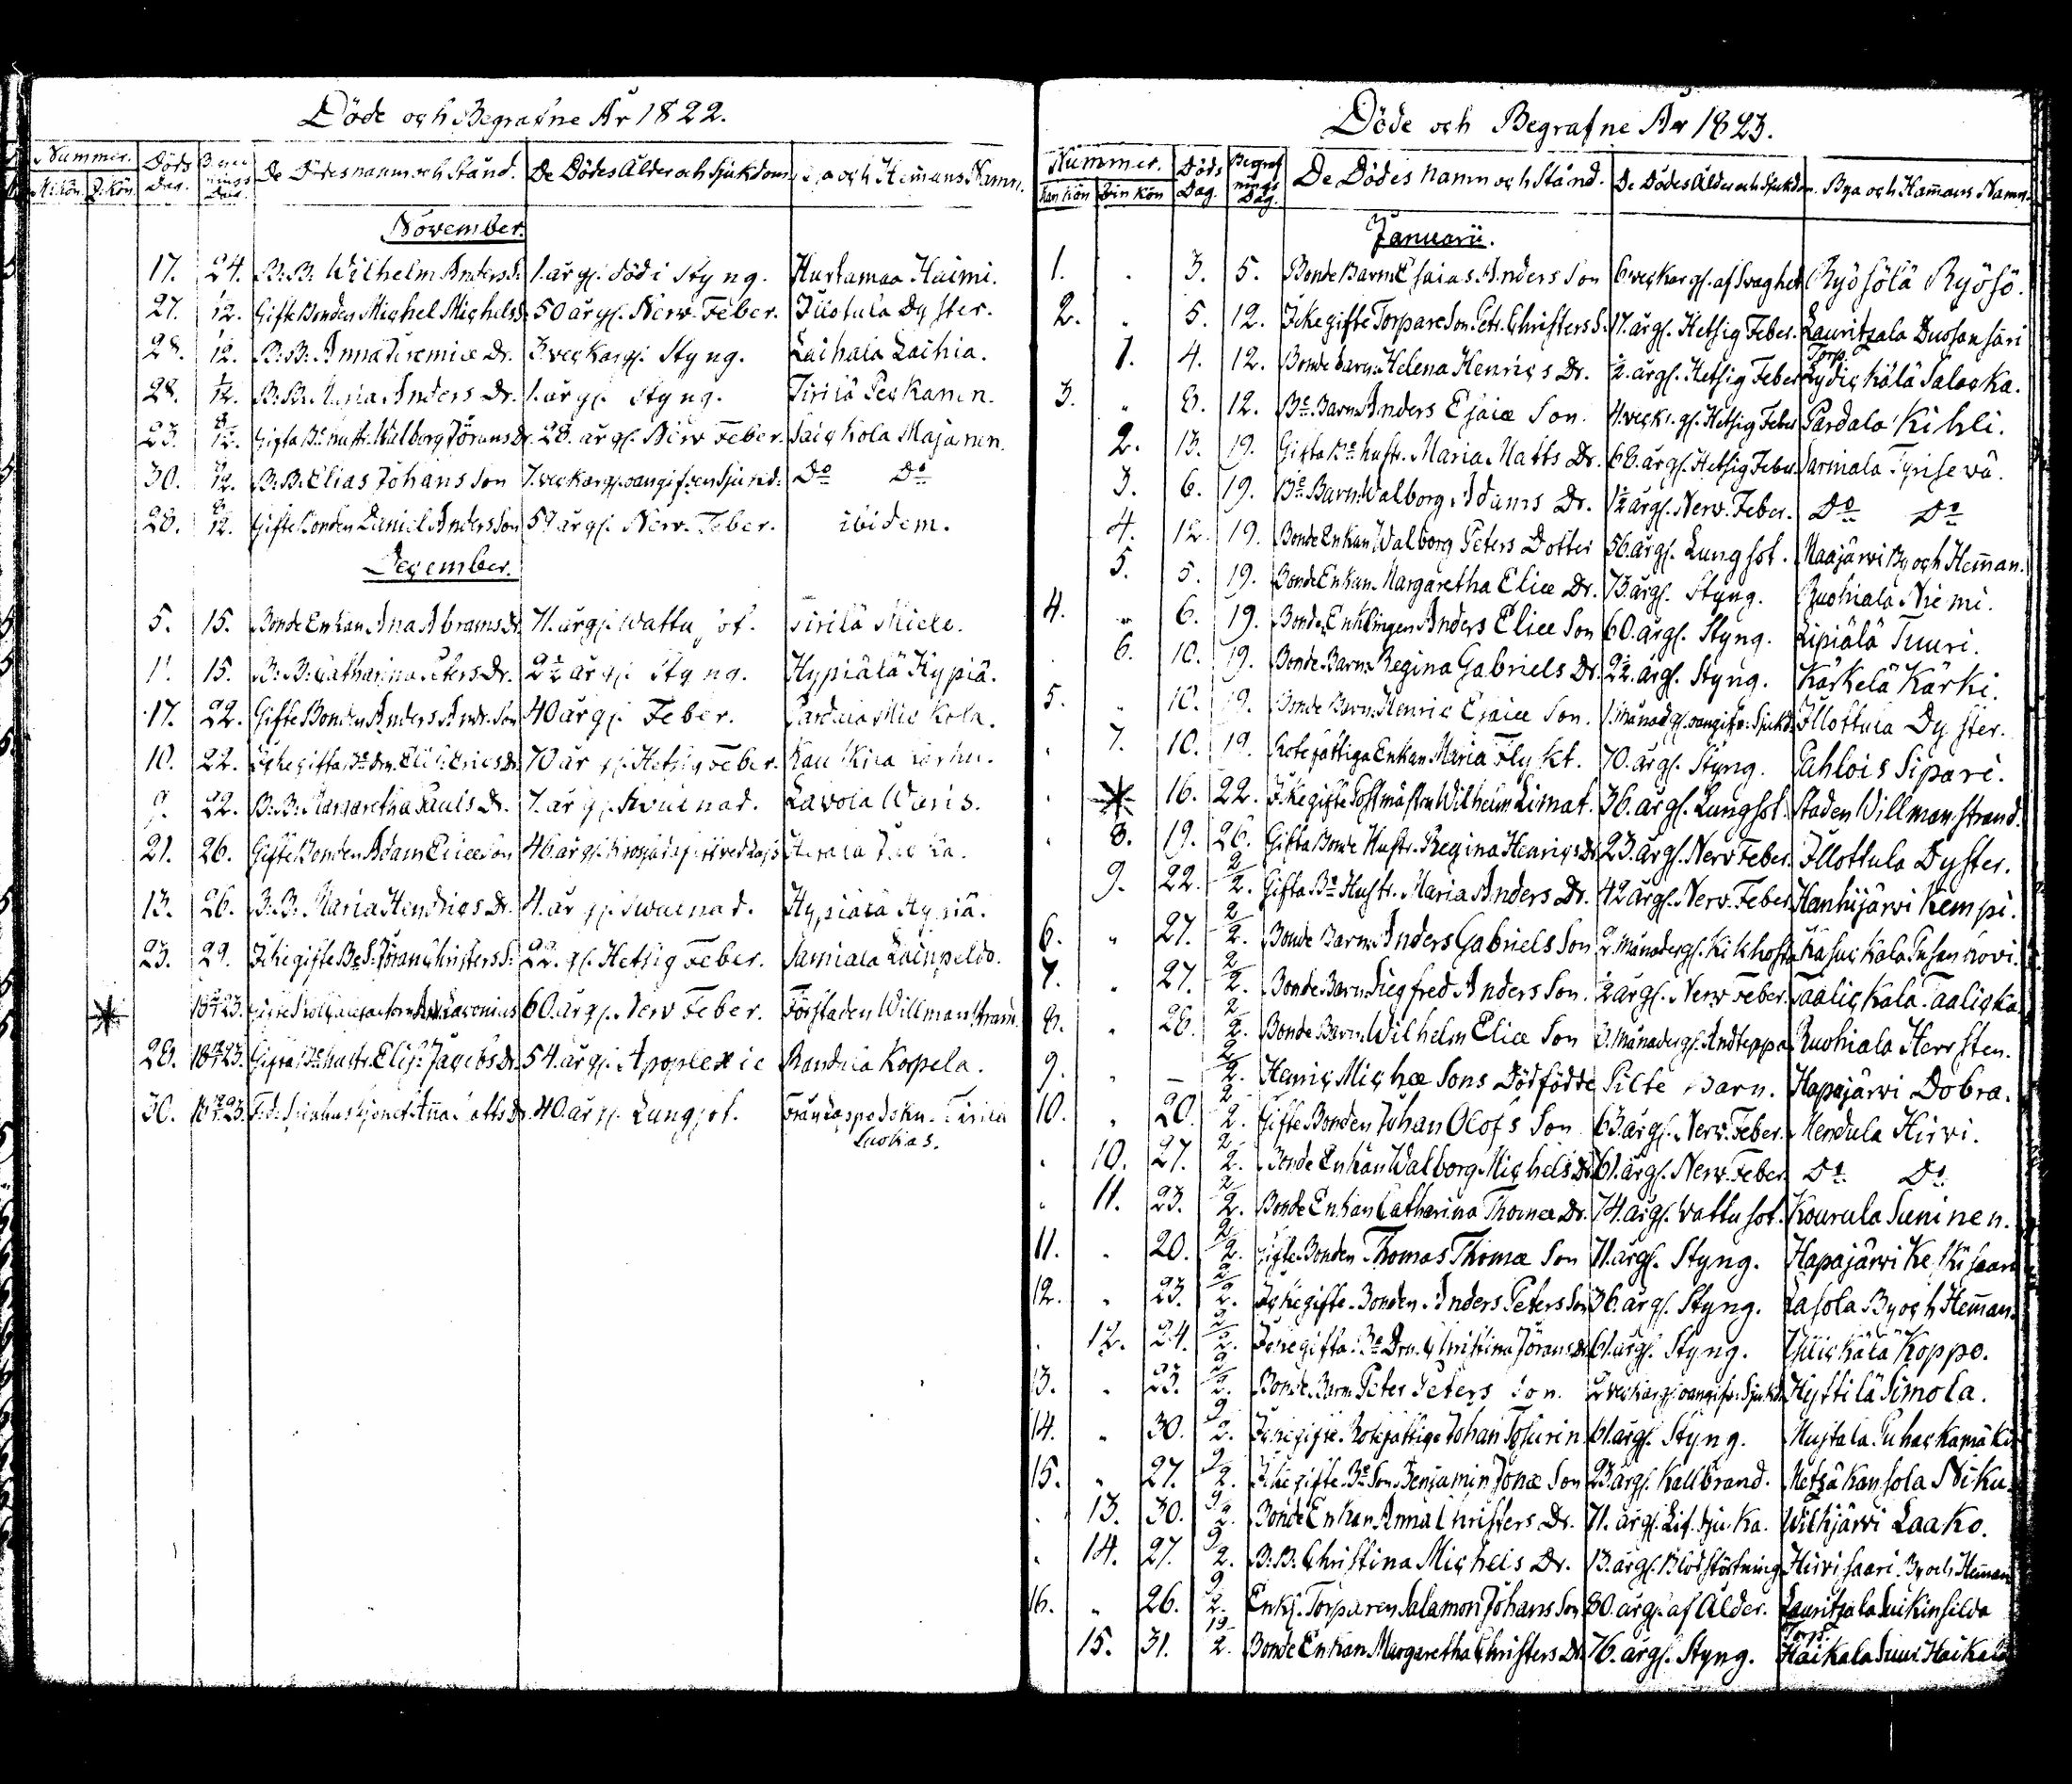 Döde och Begrafne År 1822.
Nummer. Döds Dag. De Dödes namn och Stånd. De Dödes Ålder och Sjukdom och Hemans Namn.
M:kön. Q:kön.
November.
17. 24. B:B: Wilhelm Anders S: 1. år gl. död i Styng. Hurtamaa Haimi.
27. 12. Gifte Bonden Michel Michels S. 50 år gl. Nerv. Feber. Illotula Dyster.
28. 12. B:B: Anna Jeremiæ Dr. 3 veckor gl. Styng. Laihala Laihia.
28. 12. B:B: Maria Anders Dr. 1. år gl. Styng. Tirilä Peckanen.
23. 8/12. Gifta Be hustr. Walborg Jörans Dr. 28. år gl. Nerv Feber. Saickola Majanen.
30. 12. B:B: Elias Johans Son 7. veckor gl. oangifven Sjukd: Do Do
28. 8/12. Gifte Bonden Daniel Anders Son 57 år gl. Nerv. Feber. ibidem.
December.
5. 15. Bonde Enkan Ana Abrams Dr. 71. år gl. Wattu sot. Tirilä Miele.
11. 15. B:B: Catharina Peters Dr. 2½ år gl. Styng. Hypiälä Hypiä.
17. 22. Gifte Bonden Anders Andr. Son 40 år gl. Feber. Pardala Mickola.
10. 22. Icke gifta Be Dr. Elis: Erics Dr. 70 år gl. Hetsig Feber.
9. 22. B:B: Margaretha Pauls Dr. 7. år gl. Swulnad. Lavola Waris.
21. 26. Gifte Bonden Adam Ericæ Son 46. år gl.
13. 26. B:B: Maria Hendrics Dr. 4. år gl. Swulnad. Hypiälä Hypiä.
23. 29. Icke gifte Be S: Jöran Christers S: 22. gl. Hetsig Feber. Samiala Lainpeldo.
18 23. 60. år gl. Nerv Feber. Förstaden Willmanstrand.
28. 18 23. Gifta Be hustr. Elis: Jacobs Dr. 54. år gl. Apoplexie Randala Kopela.
30. 18 23. Anna Matts Dr. 40. år gl. Lungsot. Tirilä
Luokas.
Döde och Begrafne År 1823.
Nummer. Döds Dag. Begrafnings Dag. De Dödes Namn och Stånd. De Dödes Ålder och Sjukdom. Bya och Hemans Namn.
Man kön Qvin kön
Januarii.
1. . 3. 5. Bonde Barn: Esaias Anders Son 6. veckor gl. af Svaghet Ryösölä Ryösö.
2. " 5. 12. Icke gifte Torpare Son. Petr. Christers S. 17. år gl. Hetsig Feber. Lauritzala Duosansari
1. 4. 12. Bonde barn. Helena Henrics Dr. ½. år gl. Hetsig Feber Torp. Lydickälä Salocka.
3. " 8. 12. Be Barn Anders Esaiæ Son. 4. veck. gl. Hetsig Feber Pardala Kihli.
2. 13. 19. Gifta Be hustr. Maria Matts Dr. 68. år gl. Hetsig Feber Sarmala Tynisevä.
3. 6. 19. Be Barn. Walborg Adams Dr. 1½ år gl. Nerv. Feber. Do Do
4. 12. 19. Bonde Enkan Walborg Peters Dotter 56. år gl. Lungsot. Haajärvi By och Heman.
5. 5. 19. Bonde Enkan. Margaretha Eliæ Dr. 73. år gl. Styng. Ruohiala Niemi.
4. " 6. 19. Bonde Enklingen Anders Eliæ Son 60. år gl. Styng. Lipiälä Tuuri.
6. 10. 19. Bonde Barn Regina Gabriels Dr. 2½. år gl. Styng. Kärkelä Kärki.
5. " 10. 19. Bonde Barn. Henric Esaiæ Son. 1. Månad gl. oangifv. Sjukd. Illottula Dyster.
. 7. 10. 19. Rotefattiga Enkan Maria Flykt. 70. år gl. Styng. Pahlois Sipari.
. 16. 22. Icke gifte Postmästrn Wilhelm Limat. 36. år gl. Lungsot. Staden Villmanstrand.
. 8. 19. 26. Gifta Bonde Hustr. Regina Henrics Dr. 23. år gl. Nerv Feber. Illottula Dyster.
9. 22. 2/2. Gifta Be Hustr. Maria Anders Dr. 42 år gl. Nerv. Feber Hanhijärvi Kempi.
6. " 27. 2/2. Bonde Barn. Anders Gabriels Son 2. Månader gl. Kikhosta
7. . 27. 2/2. Bonde Barn. Siegfred Anders Son. ½ år gl. Nerv Feber. Taalickala Taalicka
8. . 28. 2/2. Bonde Barn. Wilhelm Eliæ Son 3. Månader gl. Andteppa Ruohiala Hersten.
9. . – 2/2. Henric Michæ Sons Dödfödde Pilte Barn. Hapajärvi Dobra.
10. . 20. 2/2. Gifte Bonden Johan Olofs Son 63. år gl. Nerv. Feber. Mendula Hirvi.
. 10. 27. 2/2. Bonde Enkan Walborg Michels Dr. 61. år gl. Nerv. Feber Do Do
. 11. 23. 2/2. Bonde Enkan Catharina Thomæ Dr. 74. år gl. Wattusot. Kourula Suninen.
11. . 20. 2/2. Gifte Bonden Thomas Thomæ Son 71. år gl. Styng. Hapajärvi Keskisaari
12. . 23. 2/2. Icke gifte Bonden Anders Peters Son 36. år gl. Styng. Lasola By och Heman.
. 12. 24. 2/2. Icke gifta Be Dr. Christina Jörans Dr. 61. år gl. Styng. Yllickälä Koppo.
13. . 23. 2/2. Bonde Barn Peter Peters Son. 2 veckor gl. oangifv: Sjukd. Hyttilä Simola.
14. " 30. 9/2. Icke gifte Rotefattige Johan Tosurin 61. år gl. Styng. Mustala Puhackamäki
15. " 27. 9/2. Icke gifte Be Son Benjamin Jonæ Son 23. år gl. Kallbrand. Metzäkansola Niku
. 13. 30. 9/2. Bonde Enkan Anna Christers Dr. 71. år gl. Lif. sjuka. Wilkjärvi Laako.
. 14. 27. 9/2. B:B: Christina Michels Dr. 13. år gl. Blodstörtning Hirvisaari By och Heman
16. " 26. 9/2. Enkl. Torparen Salamon Johans Son 80. år gl. af Ålder. Lauritzala Suikinsilda
15. 31. 19/2. Bonde Enkan Margaretha Christers Dr. 76. år gl. Styng. Torp. Haikala Suur Haikala